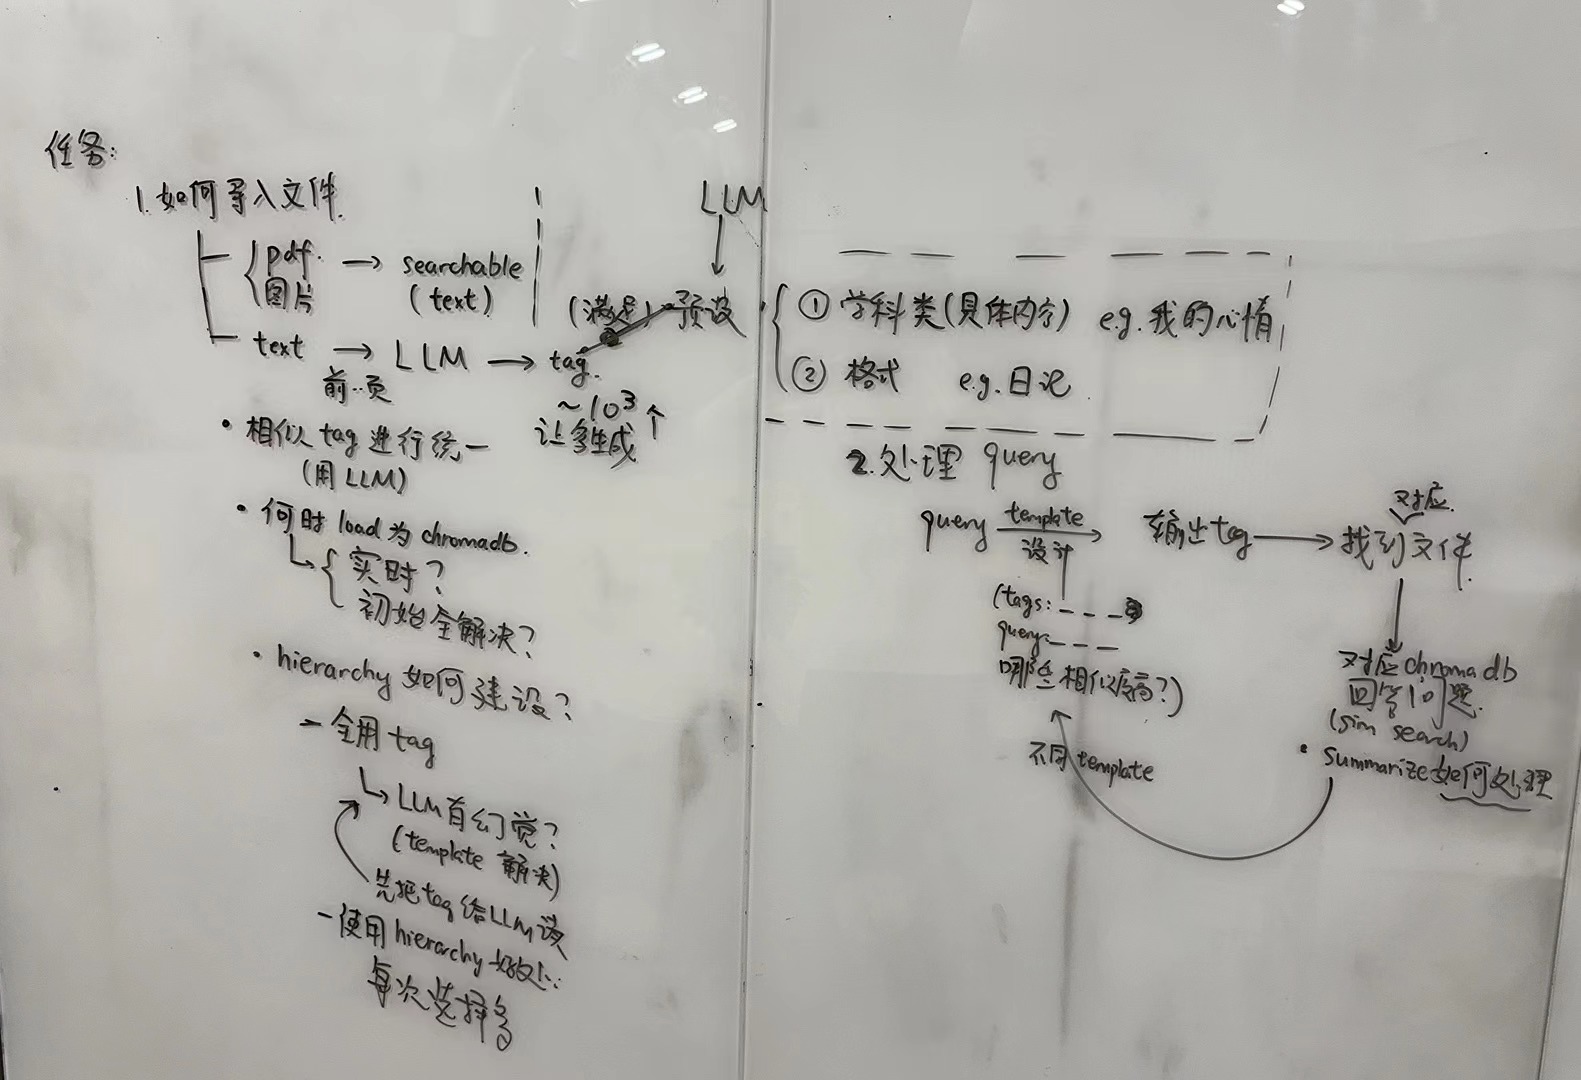 任务:
1. 如何导入文件.
pdf. → searchable
图片 (text)
text → LLM → tag.
前..页
~10³个
让多生成
(满足)
LLM
预设
① 学科类(具体内容) e.g. 我的心情
② 格式 e.g. 日记
• 相似 tag 进行统一
(用 LLM)
• 何时 load 为 chromadb.
实时?
初始全解决?
• hierarchy 如何建设?
- 全用 tag
LLM 有幻觉?
(template 解决)
先把 tag 给 LLM 读
- 使用 hierarchy 好处:
每次选择多
2. 处理 query
query template → 输出 tag → 找到文件.
设计
对应
(tags: - - -
query: - - -
哪些相似度高?)
不同 template
对应 chroma db
回答问题.
(sim search)
• summarize 如何处理